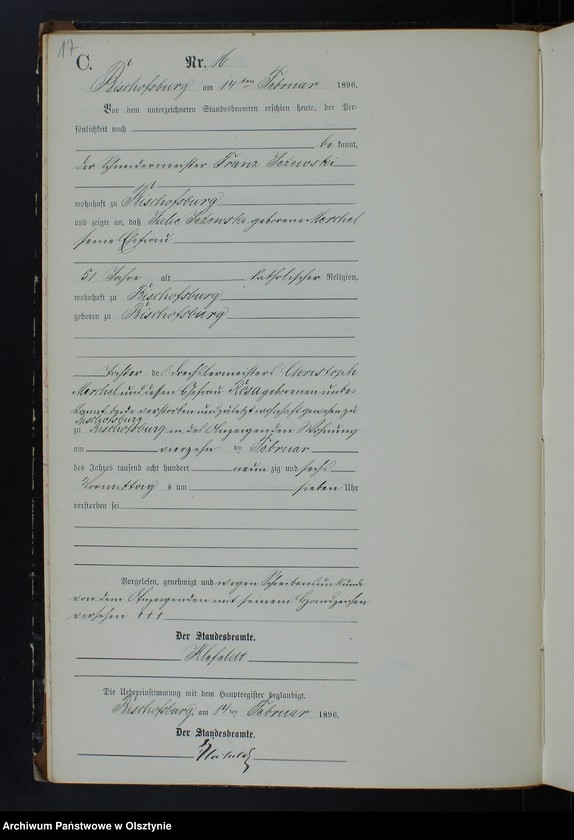 17
C.
Nr. 16
Bischofsburg am 14ten Februar 1896.
Vor dem unterzeichneten Standesbeamten erschien heute, der Per-
sönlichkeit nach
be kannt,
der Schneidermeister Franz
wohnhaft zu Bischofsburg
und zeigte an, daß Julie geborene Merchel
seine Ehefrau
51 Jahre alt katholischer Religion,
wohnhaft zu Bischofsburg
geboren zu Bischofsburg
Tochter des Drechslermeisters Christoph
Merchel und dessen Ehefrau Rosa geborenen unbe-
kannt beide verstorben und zuletzt wohnhaft gewesen zu
Bischofsburg
zu Bischofsburg in des Anzeigenden Wohnung
am vierzehn ten Februar
des Jahres tausend acht hundert neun zig und sechs
Vormittag s um sieben Uhr
verstorben sei
Vorgelesen, genehmigt und wegen Schreibensunkunde
von dem Anzeigenden mit seinem Handzeichen
versehen +++
Der Standesbeamte.
Klefeldt
Die Uebereinstimmung mit dem Hauptregister beglaubigt.
Bischofsburg, am 14 ten Februar 1896.
Der Standesbeamte.
Klefeldt
Archiwum Państwowe w Olsztynie